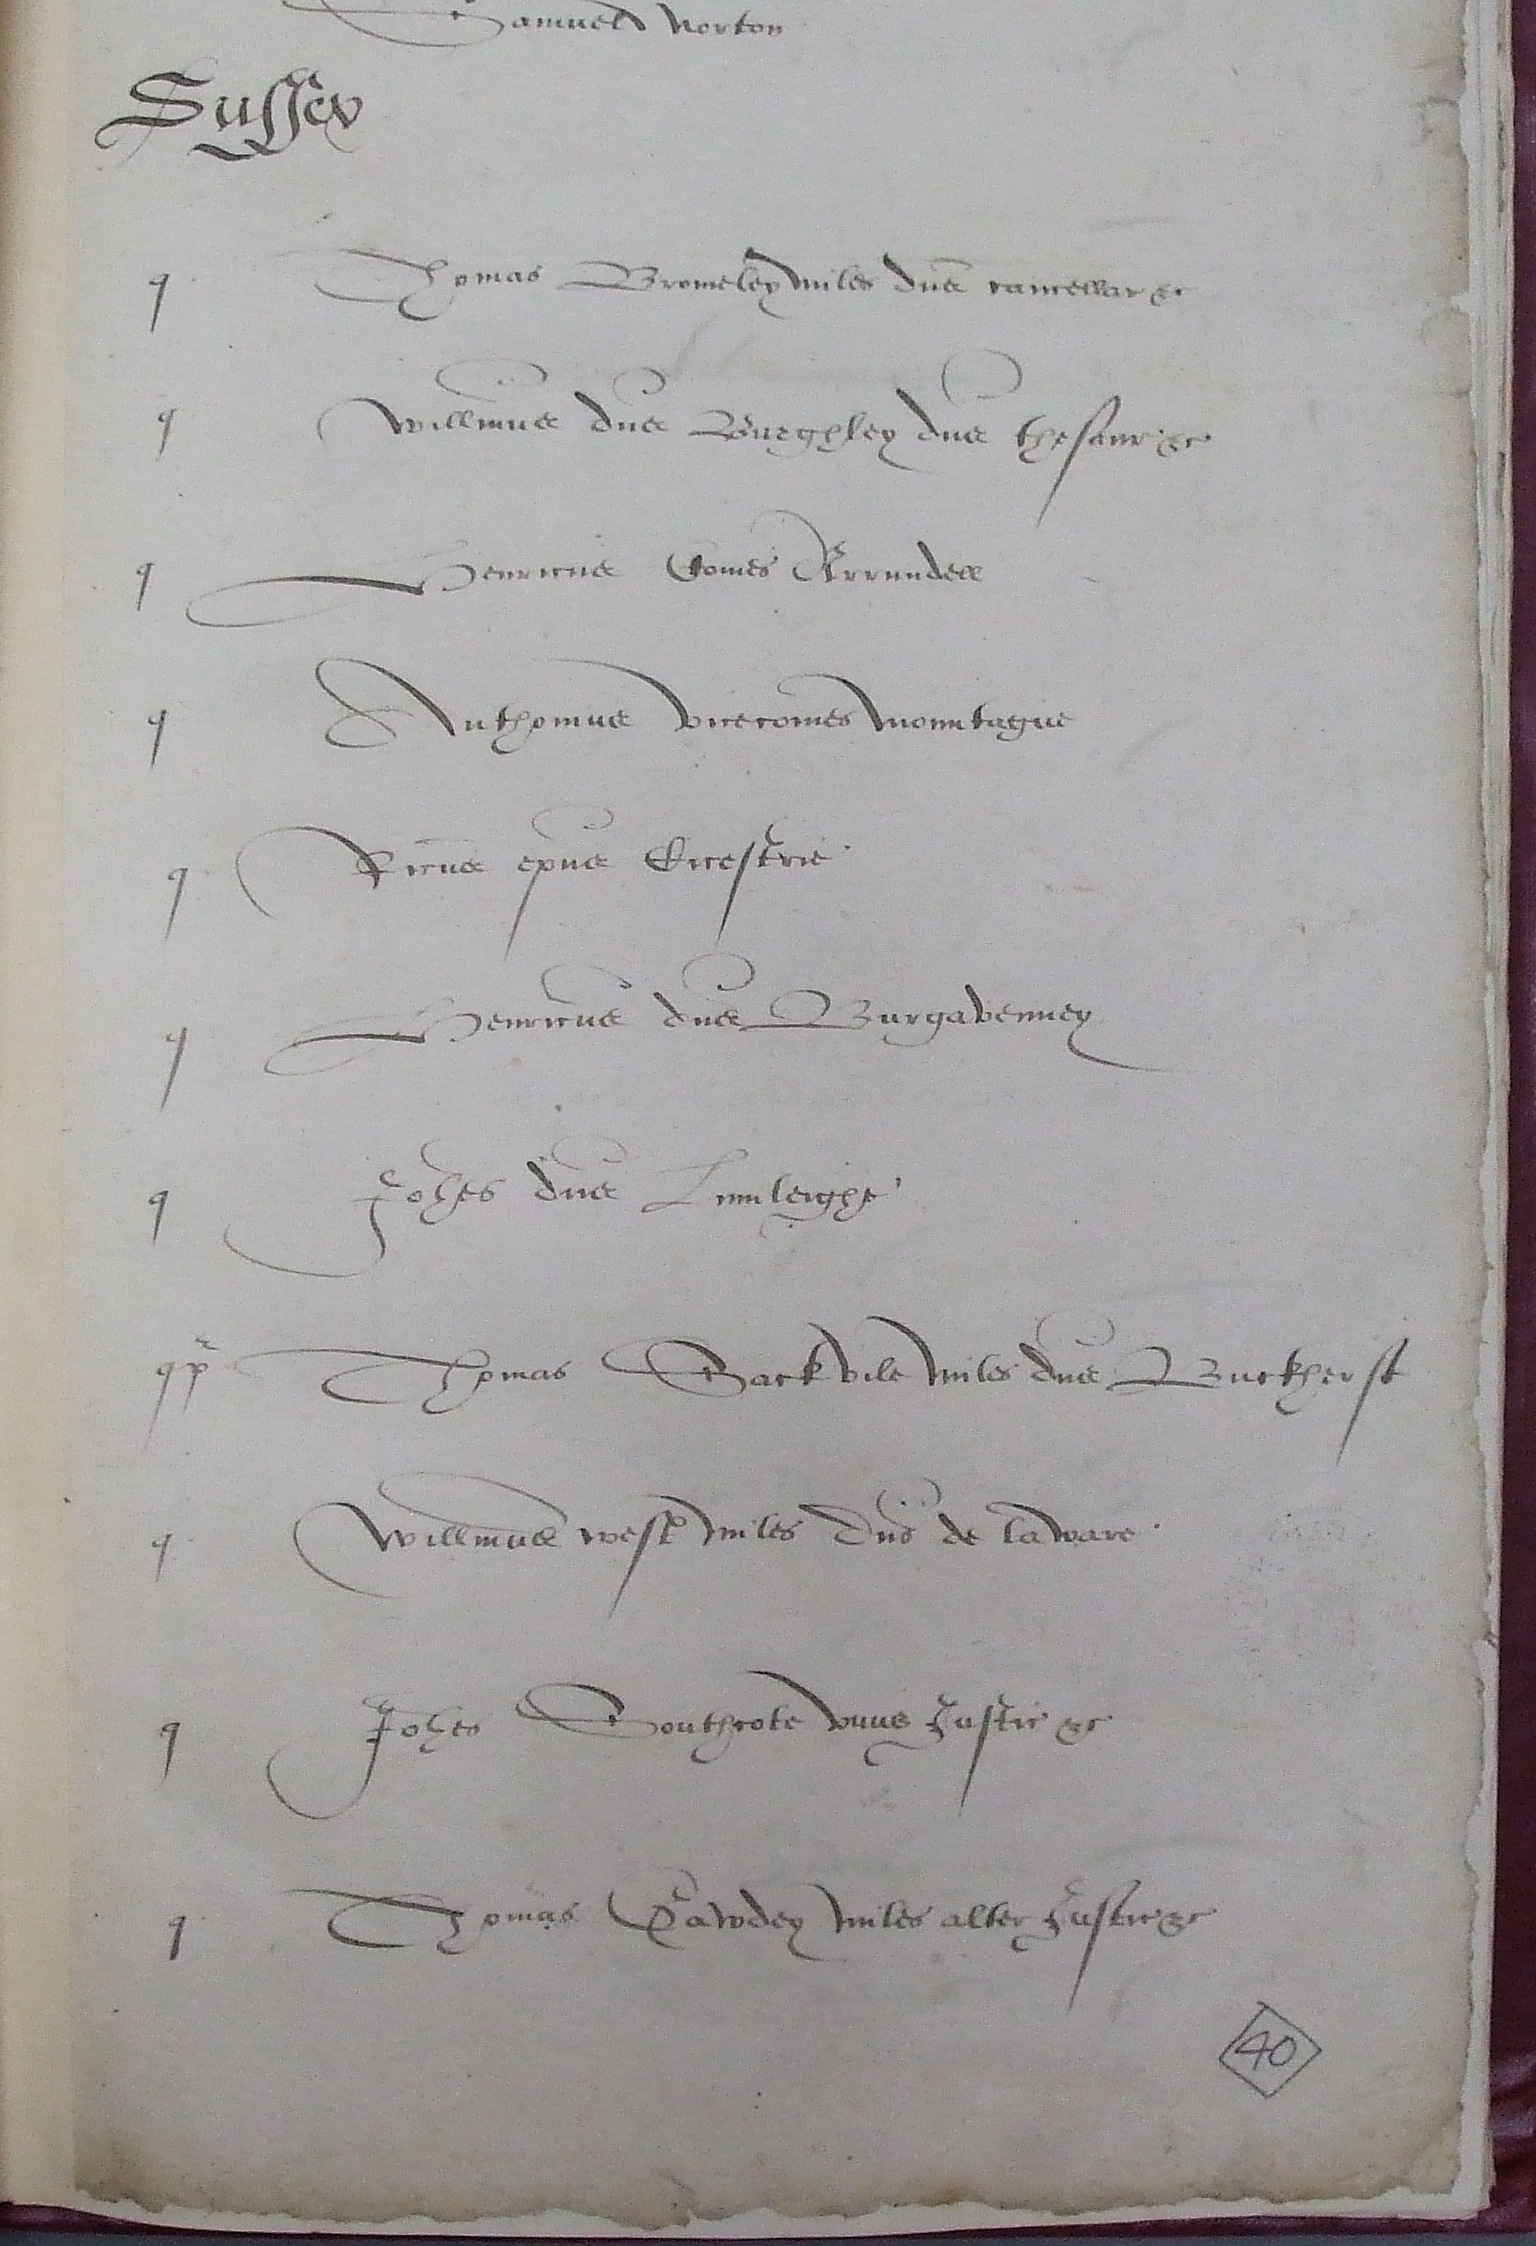 Samuel Norton
Sussex
q Thomas Bromeley miles dn̄s cancellar &c
q Willm̄us dn̄s Burghley dn̄s thesaur &c
q Henricus Comes Arrundell
q Anthonius vicecomes Mountague
q Ric̄us ep̄us Cicestrie
q Henricus dn̄s Burgavenney
q Joh̄es dn̄s Lumleighe
q p̄ Thomas Sackvile miles dn̄s Buckherst
q Willm̄us West miles Dn̄s de Laware
q Joh̄es Southcote unus Justic &c
q Thomas Gawdey miles alter Justic &c
40